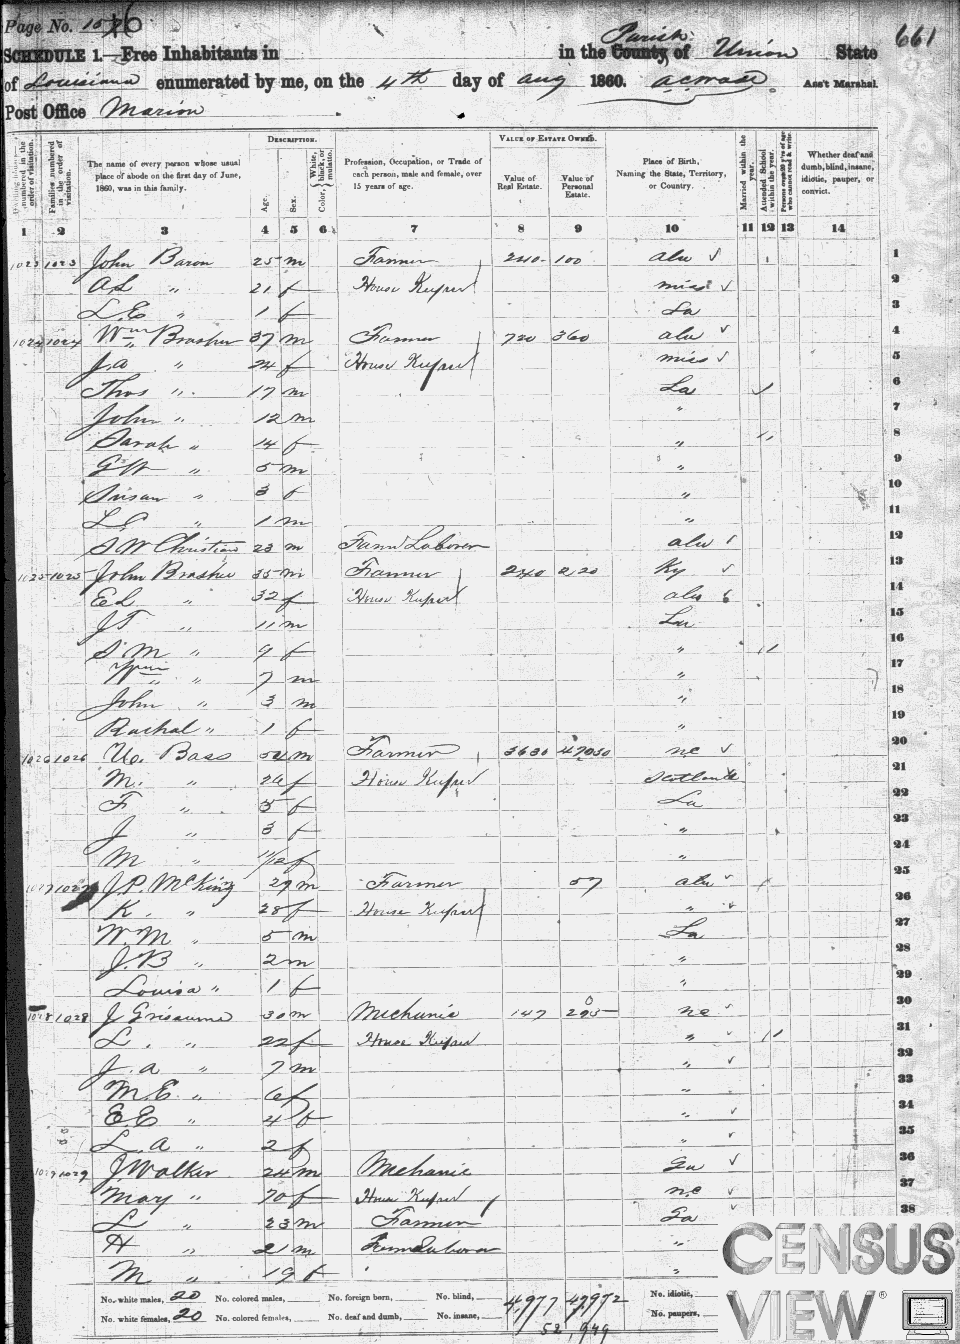 Page No. 156
661
SCHEDULE 1.—Free Inhabitants in in the County of Parish Union State
of Louisiana enumerated by me, on the 4th day of aug 1860. Ass't Marshal.
Post Office Marion
DESCRIPTION. VALUE OF ESTATE OWNED.
Dwelling-houses numbered in the order of visitation.
Families numbered in the order of visitation.
The name of every person whose usual place of abode on the first day of June, 1860, was in this family.
Age.
Sex.
Color, {White, black, or mulatto.
Profession, Occupation, or Trade of each person, male and female, over 15 years of age.
Value of Real Estate.
Value of Personal Estate.
Place of Birth, Naming the State, Territory, or Country.
Married within the year.
Attended School within the year.
Persons over 20 y'rs of age who cannot read & write.
Whether deaf and dumb, blind, insane, idiotic, pauper, or convict.
1 2 3 4 5 6 7 8 9 10 11 12 13 14
1023 1023 John Baron 25 m Farmer 240 100 ala 1
A L " 21 f House Keeper miss 2
L. E " 1 f La 3
1024 1024 Wm Brasher 37 m Farmer 720 360 ala 4
J. a " 24 f House Keeper miss 5
Thos " 17 m La 6
John " 12 m " 7
Sarah " 14 f " 8
G W " 5 m " 9
Susan " 3 f " 10
L C " 1 m " 11
S W Christian 23 m Farm Laborer ala 12
1025 1025 John Brasher 35 m Farmer 240 220 Ky 13
E L " 32 f House Keeper ala 14
J T " 11 m La 15
S M " 9 f " 16
Wm " 7 m " 17
John " 3 m " 18
Rachal " 1 f " 19
1026 1026 Bass 54 m Farmer 3630 47030 nc 20
M. " 26 f House Keeper Scotland 21
F " 5 f La 22
J " 3 f " 23
M " 11/12 f " 24
1027 1027 J. P. McKing 29 m Farmer 57 ala 25
K. " 28 f House Keeper " 26
W. M " 5 m La 27
J. B " 2 m " 28
Louisa " 1 f " 29
1028 1028 J Grissume 30 m Mechanic 147 295 nc 30
L. " 22 f House Keeper " 31
J. a " 7 m " 32
M. E " 6 f " 33
E. E " 4 f " 34
L. a " 2 f " 35
1029 1029 J. Walker 24 m Mechanic Ga 36
Mary " 70 f House Keeper nc 37
L " 23 m Farmer Ga 38
H " 21 m Farm Laborer "
M " 19 f "
No. white males, 20 No. colored males, No. foreign born, No. blind, 4,977 47,972 No. idiotic,
No. white females, 20 No. colored females, No. deaf and dumb, No. insane, No. paupers,
52,949
CENSUS
VIEW®